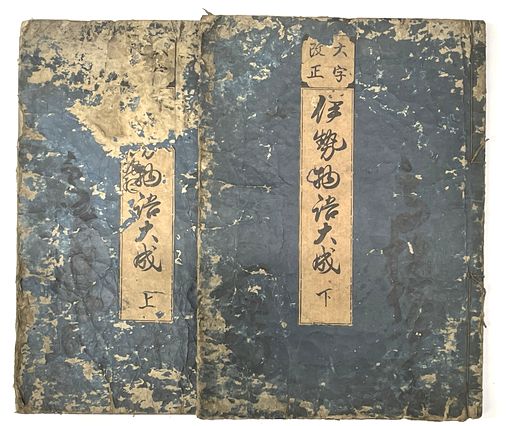 大字
改正
伊勢物語大成
下
物語大成
上